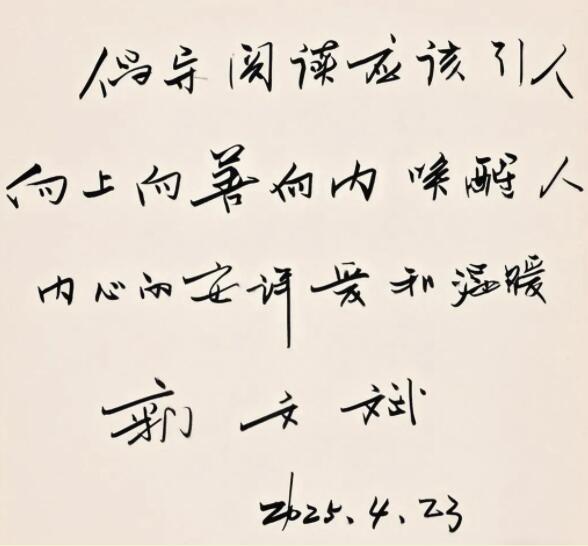 倡导阅读应该引人
向上向善向内唤醒人
内心的安详爱和温暖
郭文斌
2025.4.23